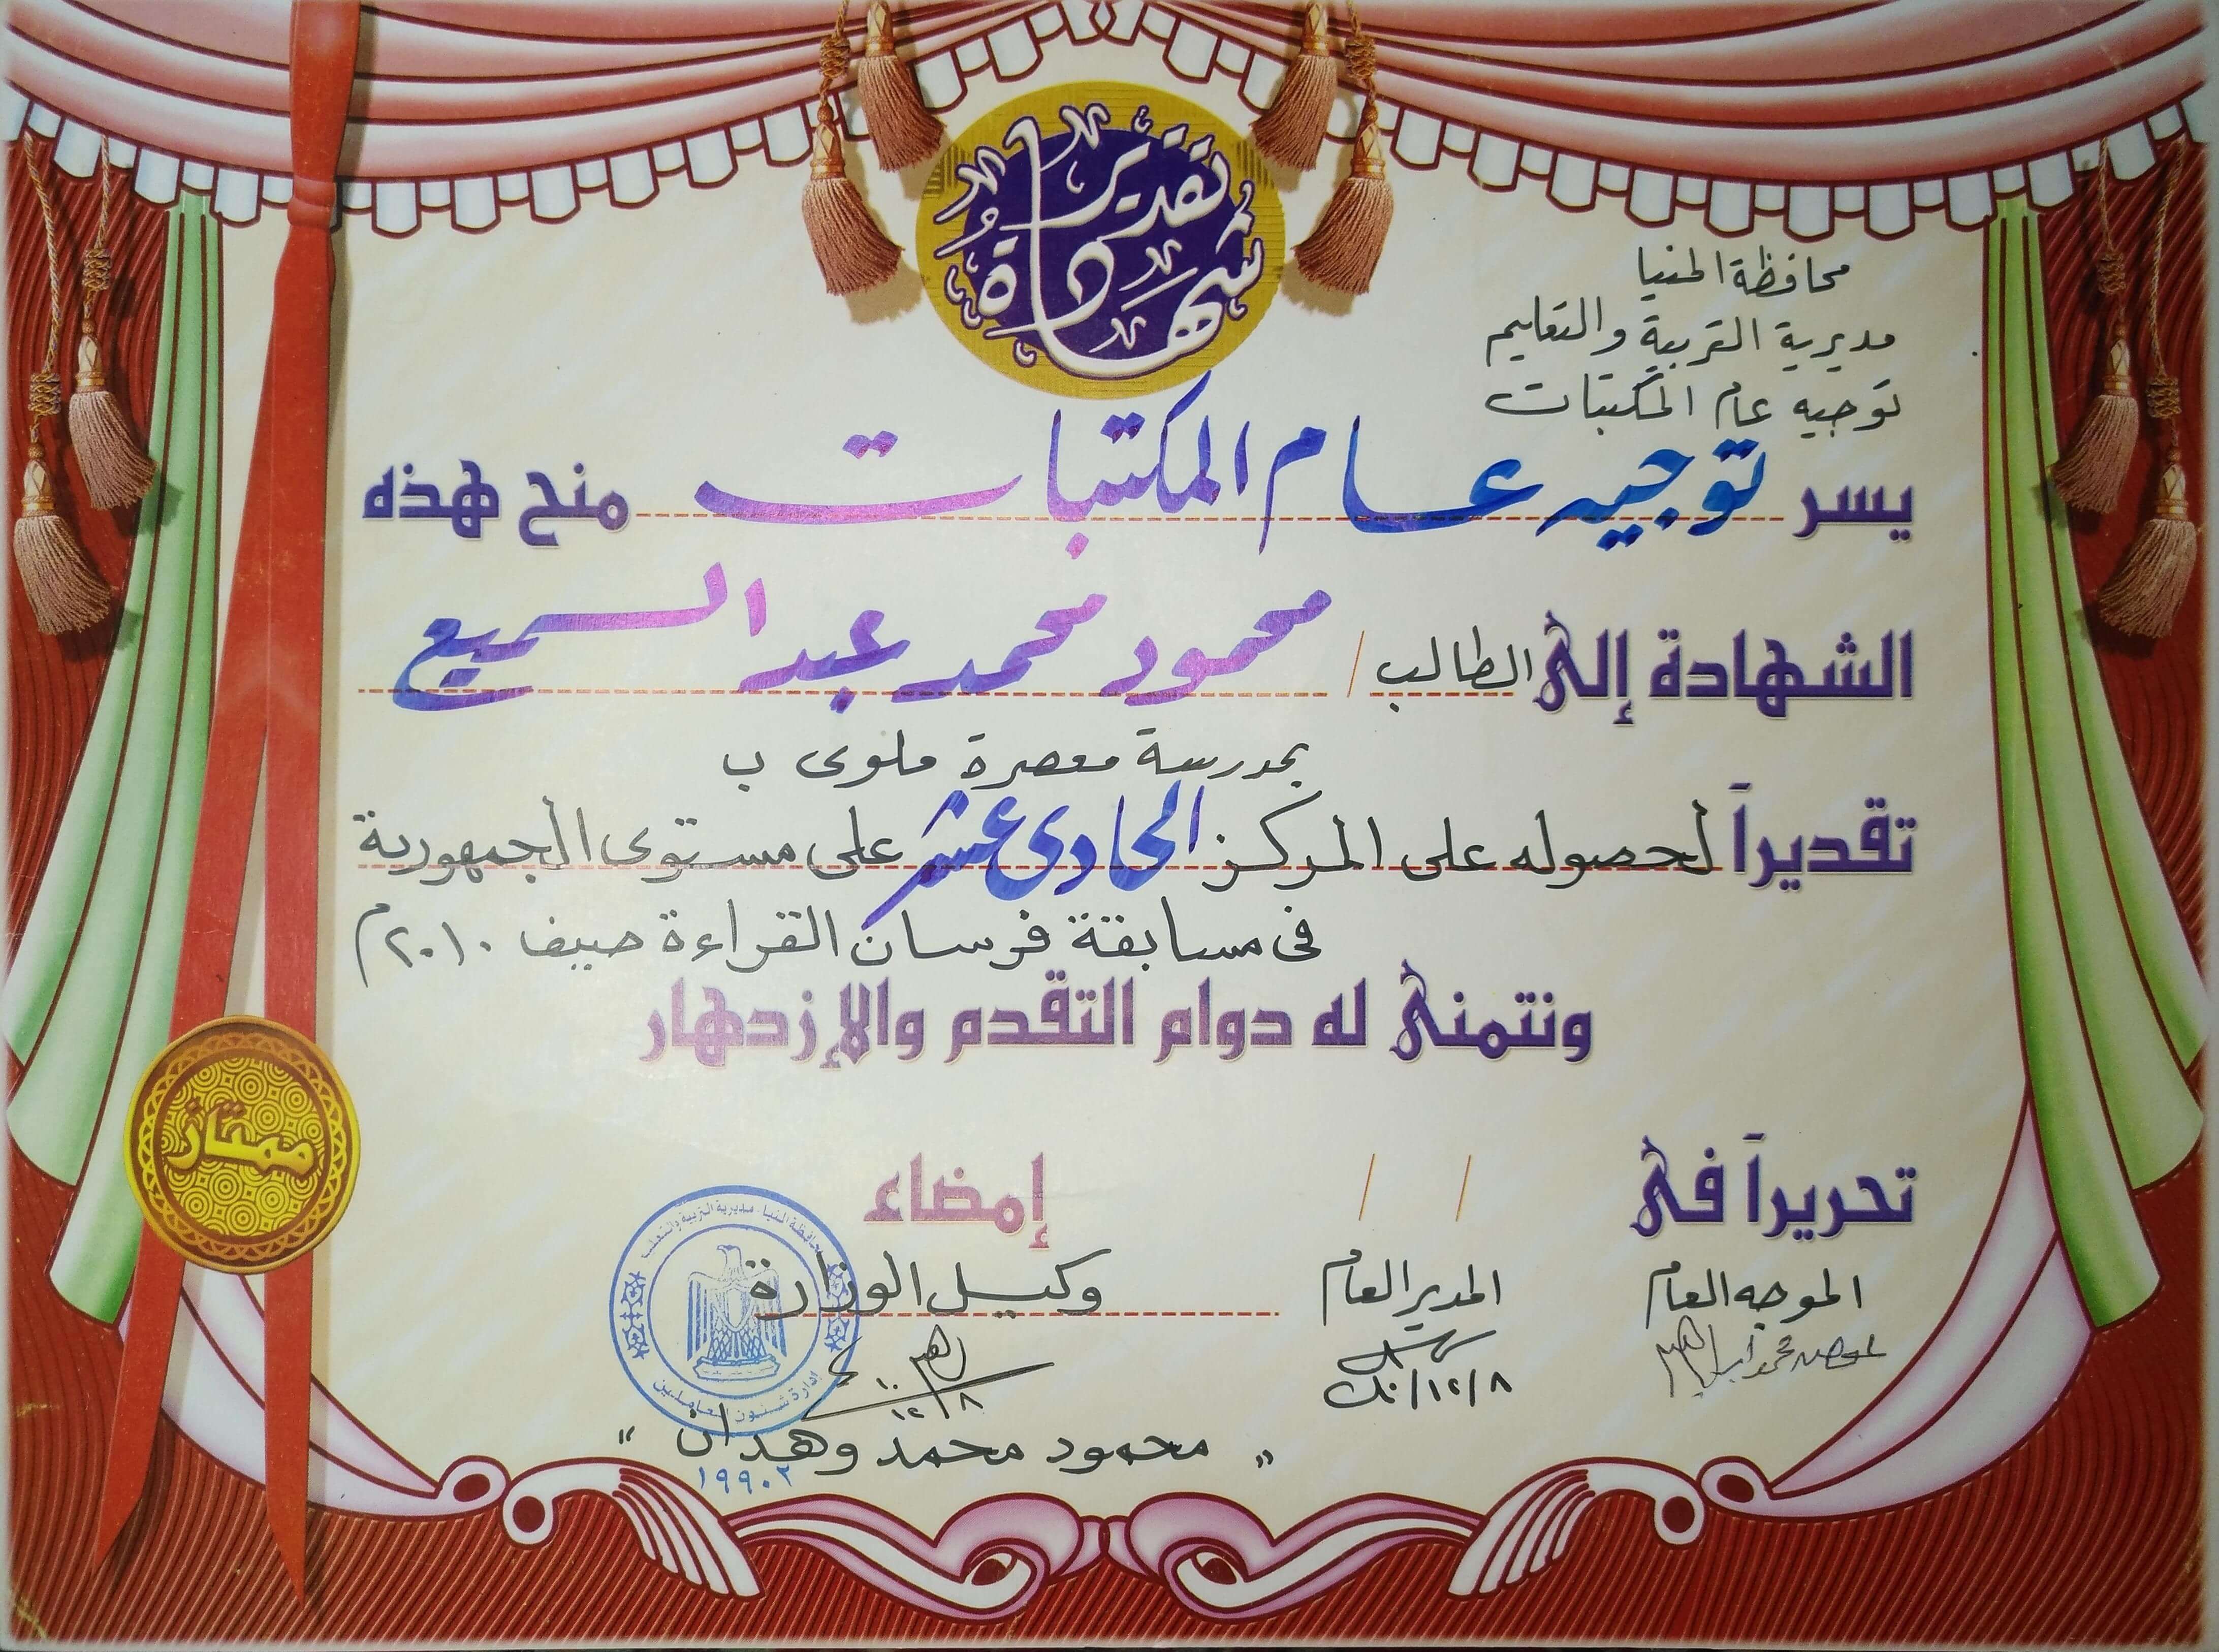 شهادة تقدير
محافظة المنيا
مديرية التربية والتعليم
توجيه عام المكتبات
يسر توجيه عام المكتبات منح هذه
الشهادة إلى الطالب / محمود محمد عبد السميع
بمدرسة معصرة ملوى ب
تقديراً لحصوله على المركز الحادى عشر على مستوى الجمهورية
فى مسابقة فرسان القراءة صيف ٢٠١٠م
ونتمنى له دوام التقدم والإزدهار
ممتاز
تحريراً فى / / إمضاء
الموجه العام المدير العام وكيل الوزارة
٨/١٢
٨/١٢
محافظة المنيا - مديرية التربية والتعليم
ادارة شئون العاملين
" محمود محمد وهدان "
١٩٩٠٢